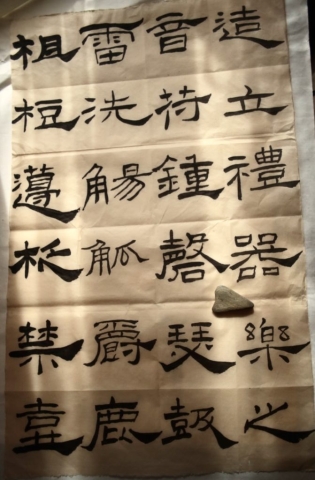 造立禮器樂之
音苻鍾磬瑟鼓
雷洗觴觚爵鹿
柤梪籩柉禁壺